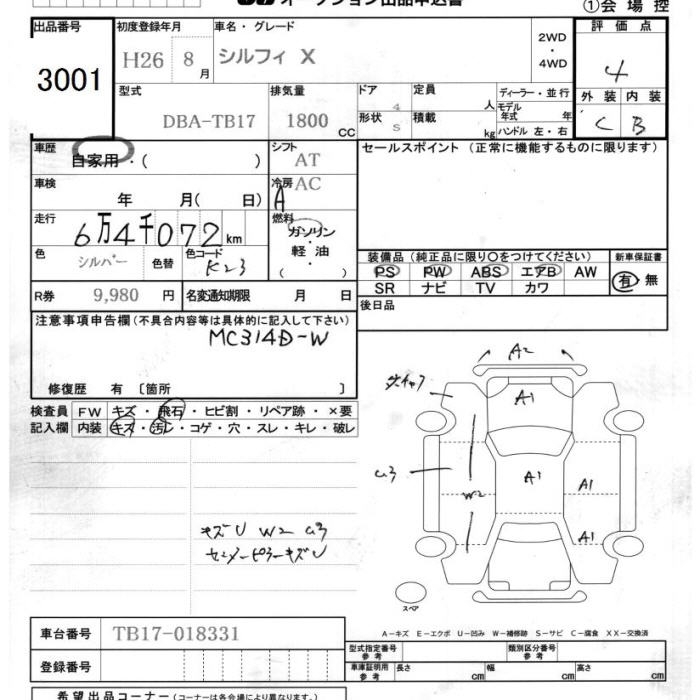 オークション出品申込書 ①会場控
出品番号 初度登録年月 車名・グレード 評価点
3001 H26 8月 シルフィ X 2WD・4WD 4
型式 排気量 ドア 定員 ディーラー・並行 外装 内装
DBA-TB17 1800cc 4 人 モデル年式 年 C B
形状 積載
S kg ハンドル 左・右
車歴 シフト セールスポイント(正常に機能するものに限ります)
自家用・( ) AT
車検 冷房 AC
年 月( 日) A
走行 燃料
6万4千072km ガソリン・軽油・( )
色 色替 色コード 装備品(純正品に限り○をつけてください) 新車保証書
シルバー K23 PS PW ABS エアB AW 有・無
SR ナビ TV カワ
R券 9,980円 名変通知期限 月 日 後日品
注意事項申告欄(不具合内容等は具体的に記入して下さい)
MC314D-W
修復歴 有〔箇所 〕
検査員 FW キズ・飛石・ヒビ割・リペア跡・×要
記入欄 内装 キズ・汚レ・コゲ・穴・スレ・キレ・破レ
A2
A1
U3
W2 A1 A1
A1
キズU W2 U3
センターピラーキズU
スペア
A-キズ E-エクボ U-凹み W-補修跡 S-サビ C-腐食 XX-交換済
車台番号 TB17-018331
型式指定番号 参考 類別区分番号 参考
登録番号 車庫証明用 参考 長さ cm 幅 cm 高さ cm
希望出品コーナー(コーナーは各会場により異なります)